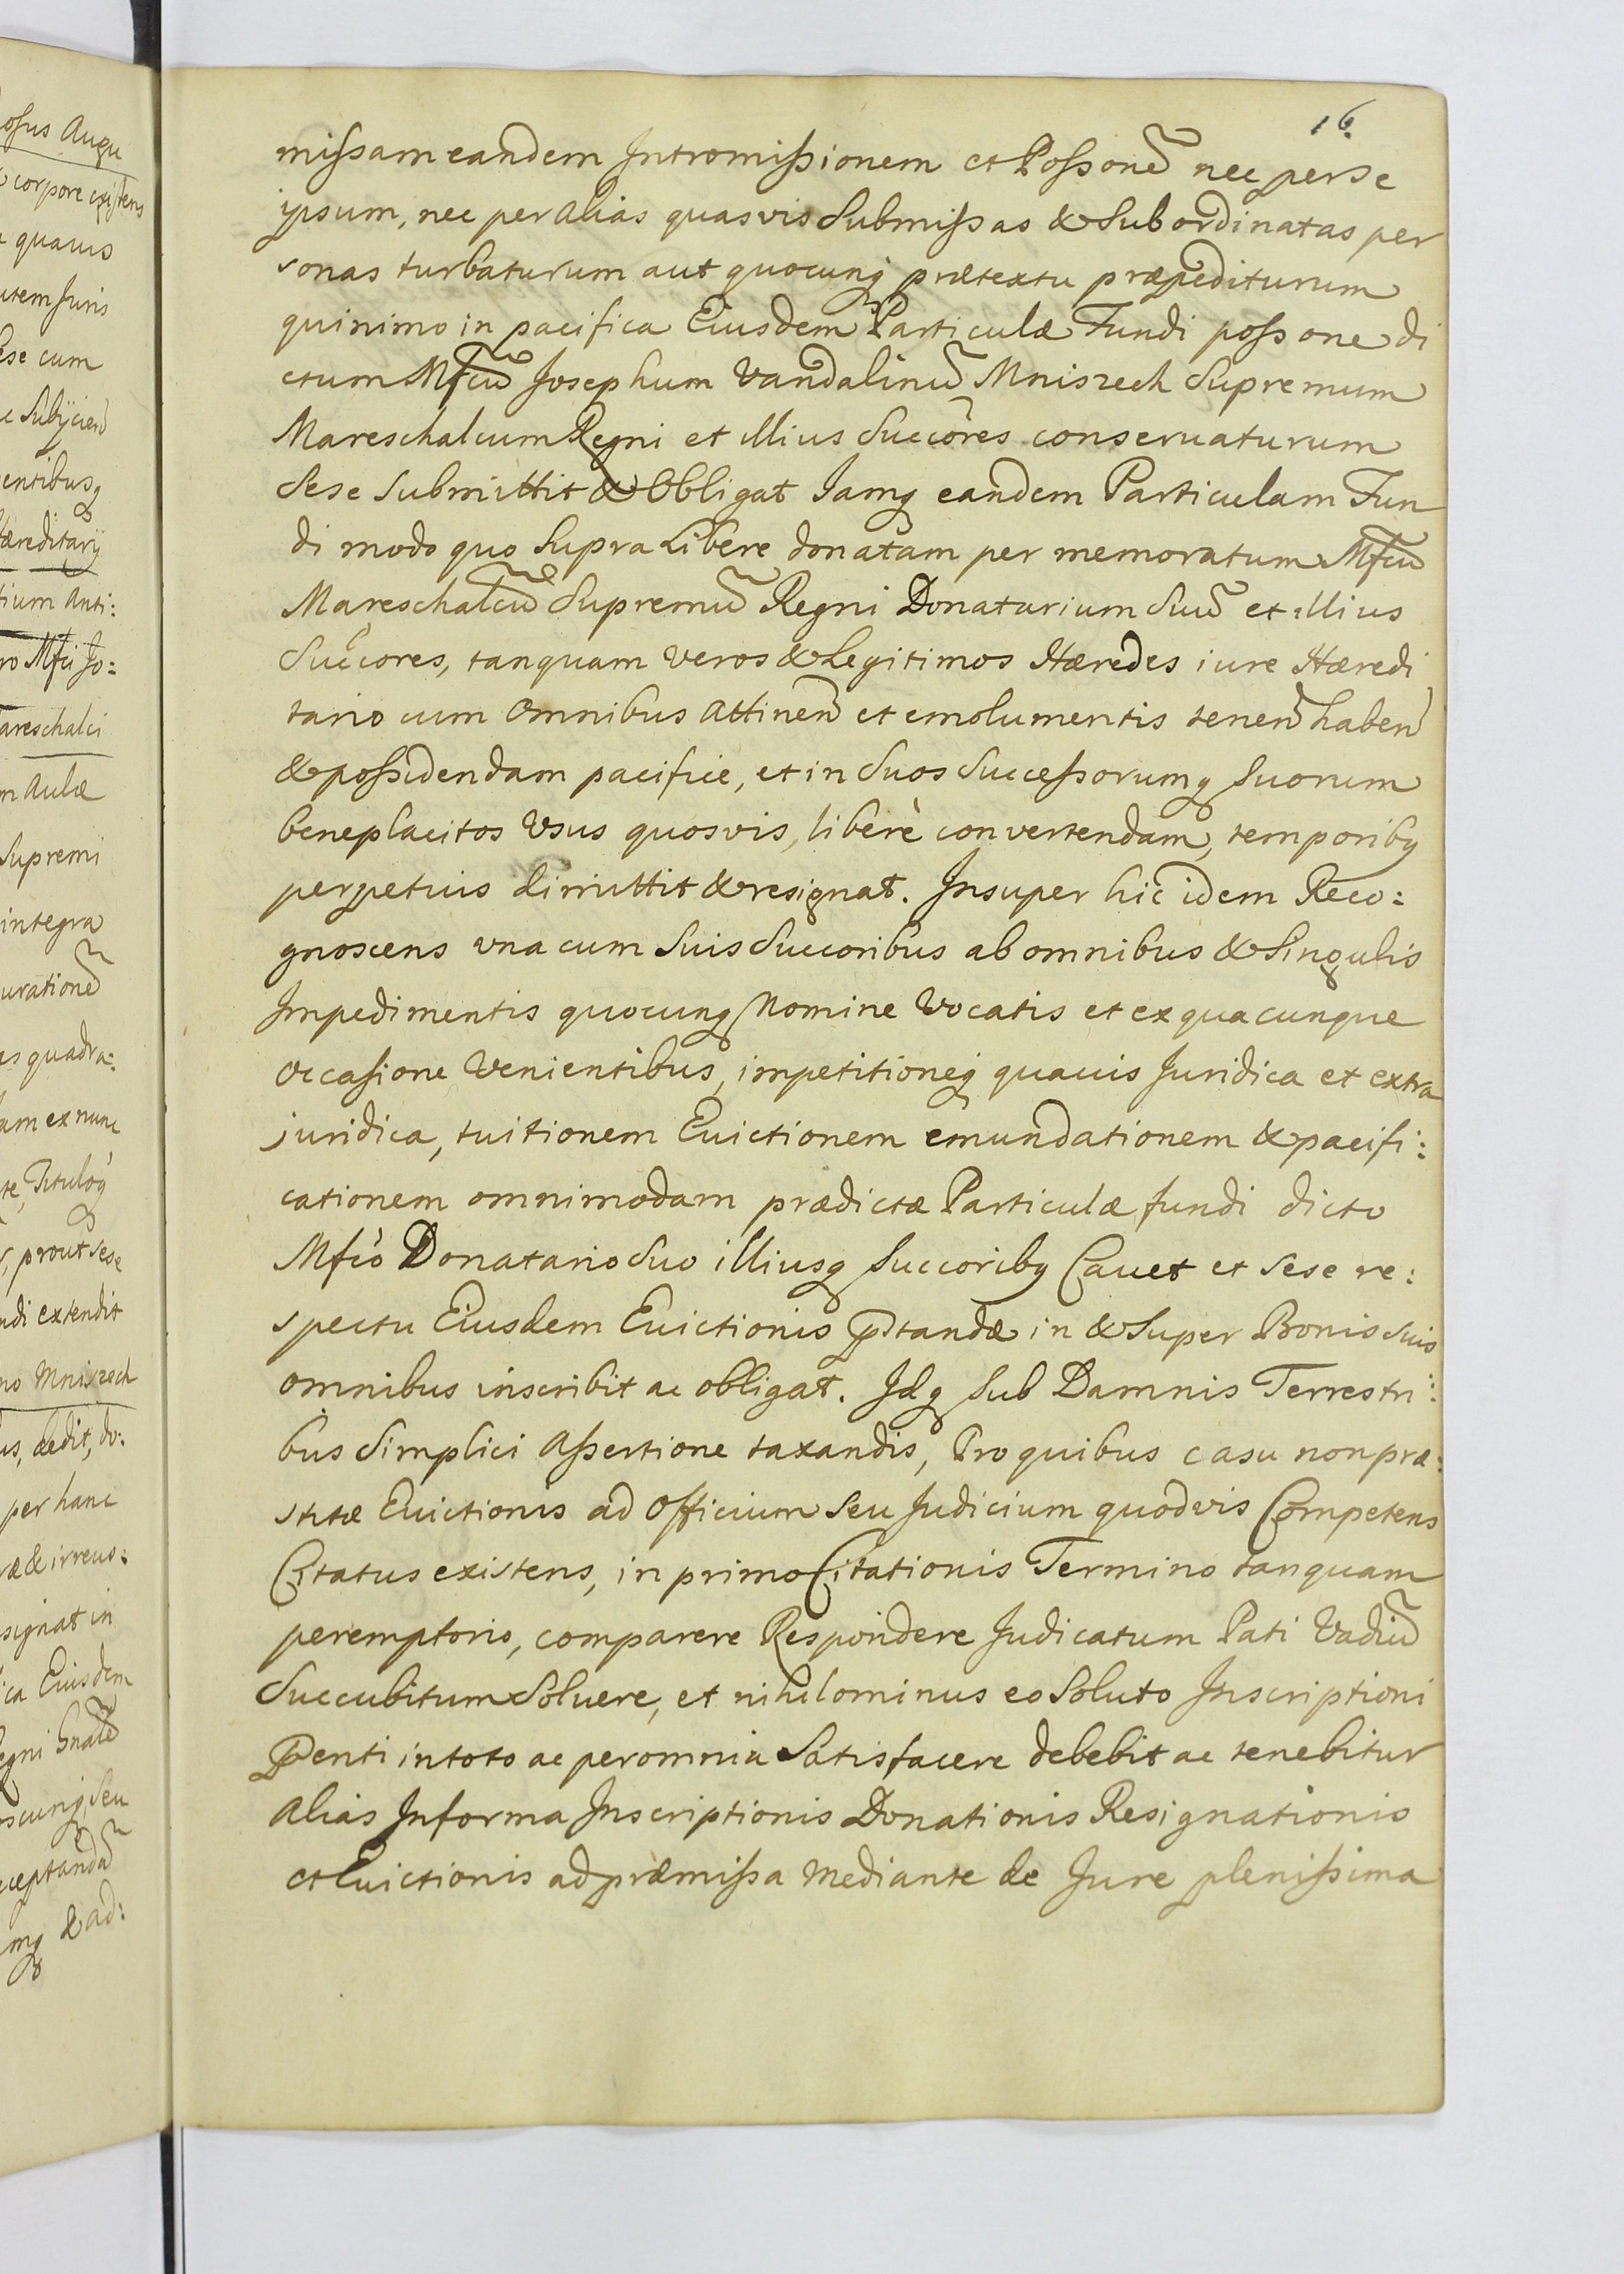 osus Augu
corpore existens
quauis
utem Juris
ese cum
Subÿcien
entibusq
Hæreditarÿ
tium Anti:
ro Mfci Jo:
areschalci
m Aulæ
Supremi
integra
urationē
as quadra:
am ex nunc
te, Tituloq
prout sese
ndi extendit
no Mniszech
us, dedit, do:
per hanc
ræ & irreuo:
signat in
ca Eiusdem
egni
scunq Seu
ceptandā
mq & ad:
16.
missam eandem Intromissionem et Possonē nec per se
ipsum, nec per alias quasvis Submissas & Subordinatas per
sonas turbaturum aut quocunq prætextu præpediturum
quinimo in pacifica Eiusdem Particulæ Fundi possone di
ctum Mfcū Josephum Vandalinū Mniszech Supremum
Mareschalcum Regni et illius Succores conseruaturum
Sese Submittit & Obligat Jamq eandem Particulam Fun
di modo quo Supra Libere donatam per memoratum Mfcū
Mareschalcū Supremū Regni Donatarium Suū et illius
Succores, tanquam veros & Legitimos Hæredes iure Hæredi
tario cum Omnibus Attinen et emolumentis tenen haben
& possidendam pacifice, et in Suos Successorumq Suorum
beneplacitos Vsus quosvis, liberè convertendam, temporibq
perpetuis dimittit & resignat. Insuper hic idem Reco:
gnoscens vna cum Suis Succoribus ab omnibus & Singulis
Impedimentis quocunq Nomine Vocatis et ex quacunque
Occasione Venientibus, impetitioneq quauis Juridica et extra
juridica, tuitionem Euictionem emundationem & pacifi:
cationem omnimodam prædictæ Particulæ fundi dicto
Mfco Donatario Suo illiusq Succoribq Cauet et sese re:
spectu Eiusdem Euictionis pstandæ in & Super Bonis Suis
omnibus inscribit ac obligat. Idq Sub Damnis Terrestri:
bus Simplici Assertione taxandis, Pro quibus casu non præ:
stitæ Euictionis ad Officium Seu Judicium quodvis Competens
Citatus existens, in primo Citationis Termino tanquam
peremptorio, comparere Respondere Judicatum Pati Vadiū
Succubitum Soluere, et nihilominus eo Soluto Inscriptioni
Pnti in toto ac per omnia Satisfacere debebit ac tenebitur
Alias In forma Inscriptionis Donationis Resignationis
et Euictionis ad præmissa Mediante de Jure plenissima